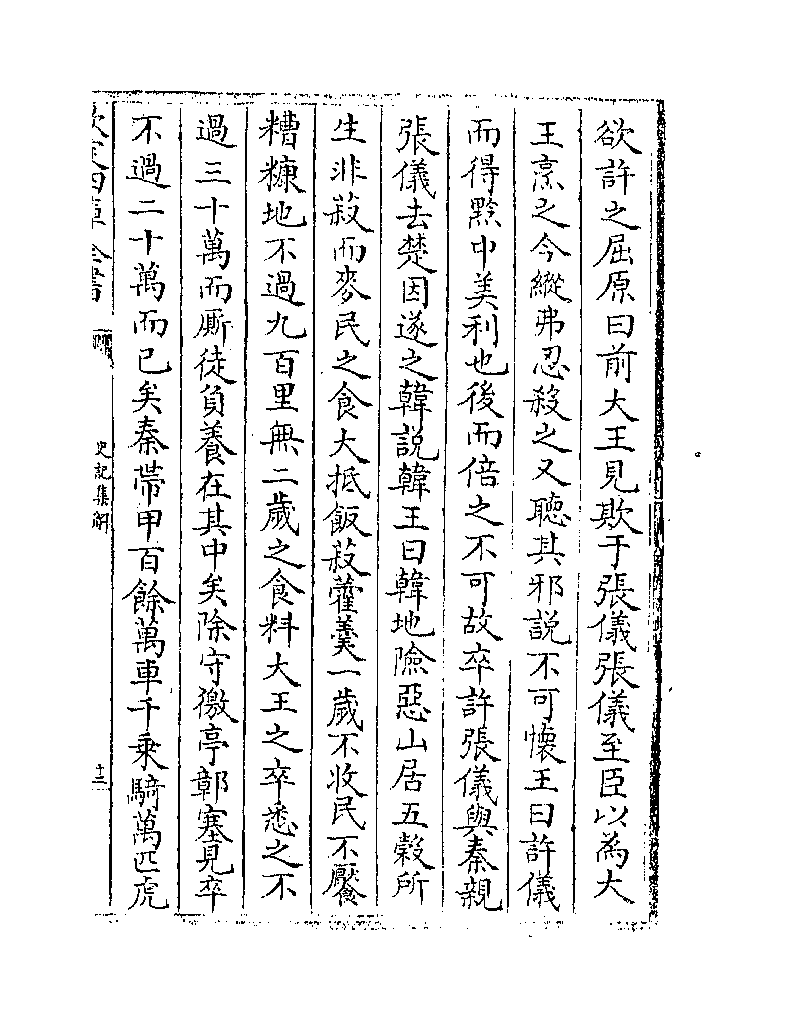 欲許之屈原曰前大王見欺于張儀張儀至臣以為大
王烹之今縱弗忍殺之又聽其邪說不可懷王曰許儀
而得黔中美利也後而倍之不可故卒許張儀與秦親
張儀去楚因遂之韓說韓王曰韓地險惡山居五穀所
生非菽而麥民之食大抵飯菽藿羹一歲不收民不饜
糟糠地不過九百里無二歲之食料大王之卒悉之不
過三十萬而廝徒負養在其中矣除守徼亭鄣塞見卒
不過二十萬而已矣秦帶甲百餘萬車千乘騎萬匹虎
欽定四庫全書
史記集解
十三